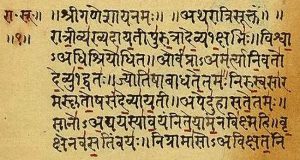 रा॰ सू॰ ॥श्रीगणेशायनमः॥ ॥अथरात्रिसूक्तं॥
॥१॥ रात्रीव्यख्यदायतीपुरुत्रादेव्य१क्षभिः॥विश्वा
अधिश्रियोधित॥ओर्वप्राअमर्त्यानिवतो
देव्यु१द्वतः॥ज्योतिषाबाधतेतमः॥निरुस्वसार
मस्कृतोषसंदेव्यायती॥अपेदुहासतेतमः॥
सानोअद्ययस्यावयंनितेयामन्नविक्ष्महि॥वृ
क्षेनवसतिंवयः॥निग्रामासोअविक्षतनि